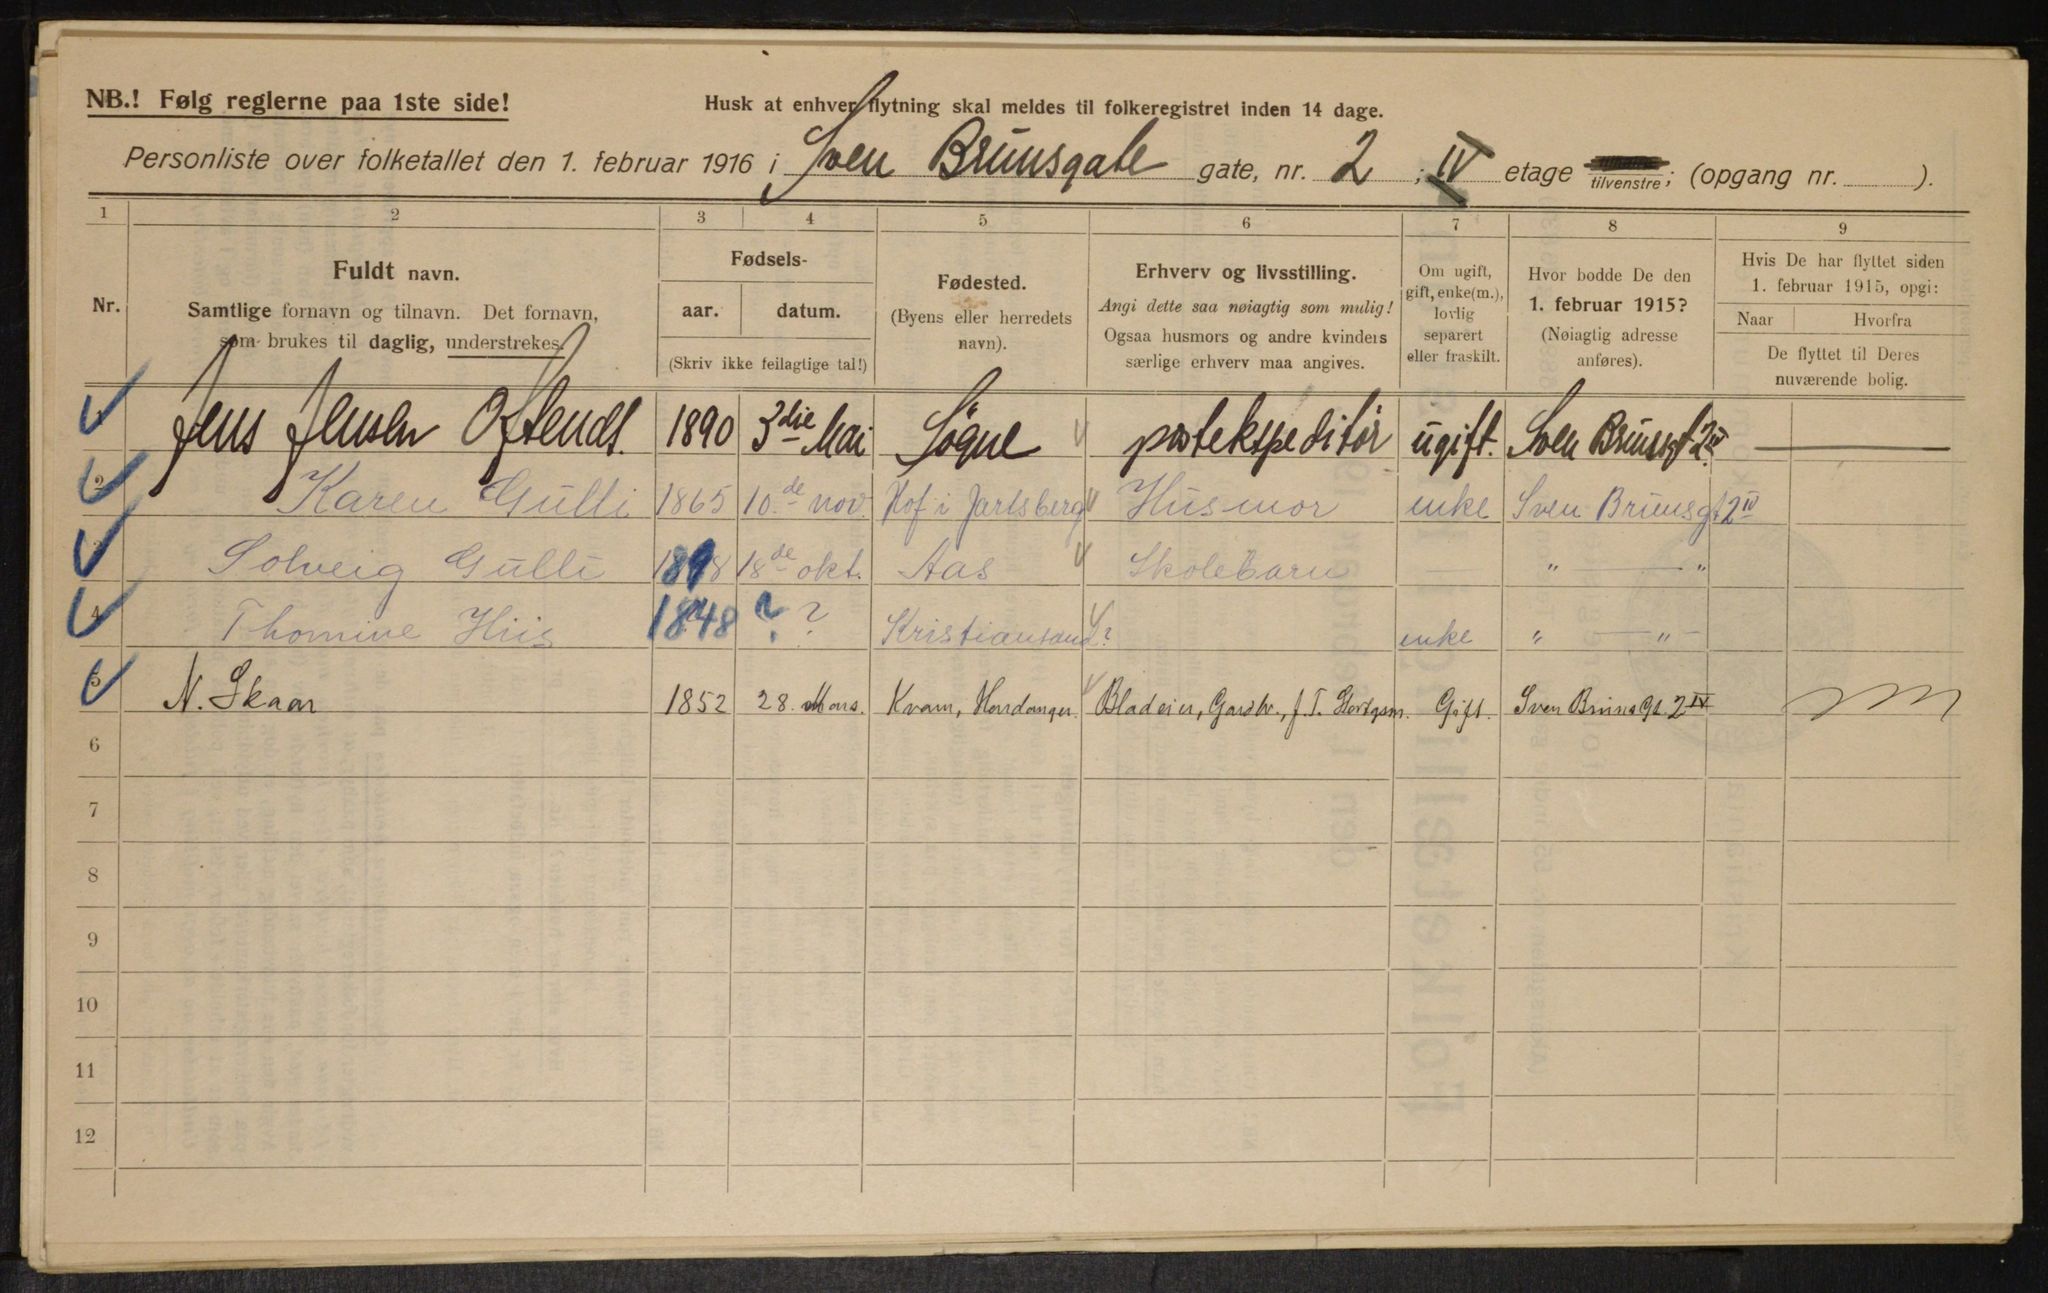 NB.! Følg reglerne paa 1ste side!
Husk at enhver flytning skal meldes til folkeregistret inden 14 dage.
Personliste over folketallet den 1. februar 1916 i Sven Brunsgate gate, nr. 2 ; IV etage tilvenstre; (opgang nr. ).
1 2 3 4 5 6 7 8 9
Nr.
Fuldt navn.
Samtlige fornavn og tilnavn. Det fornavn,
som brukes til daglig, understrekes.
Fødsels-
aar. datum.
(Skriv ikke feilagtige tal!)
Fødested.
(Byens eller herredets
navn).
Erhverv og livsstilling.
Angi dette saa nøiagtig som mulig!
Ogsaa husmors og andre kvinders
særlige erhverv maa angives.
Om ugift,
gift, enke(m.),
lovlig
separert
eller fraskilt.
Hvor bodde De den
1. februar 1915?
(Nøiagtig adresse
anføres).
Hvis De har flyttet siden
1. februar 1915, opgi:
Naar Hvorfra
De flyttet til Deres
nuværende bolig.
Jens Jensen Oftendt. 1890 3die Mai Søgne postekspeditør ugift. Sven Brunsgt 2 IV
2 Karen Gulli 1865 10.de nov. Hof i Jarlsberg Husmor enke Sven Brunsgt 2 IV
3 Solveig Gulli 1898 18de okt. Aas Skolebarn " — "
4 Thomine Hiis 1848 ? ? Kristiansand? enke " — " —
5 N. Skaar 1852 28. Mars. Kvam, Hardanger. Bladeier, Gardbr., f. T. Stortgsm. Gift. Sven Bruns Gt. 2 IV
6
7
8
9
10
11
12